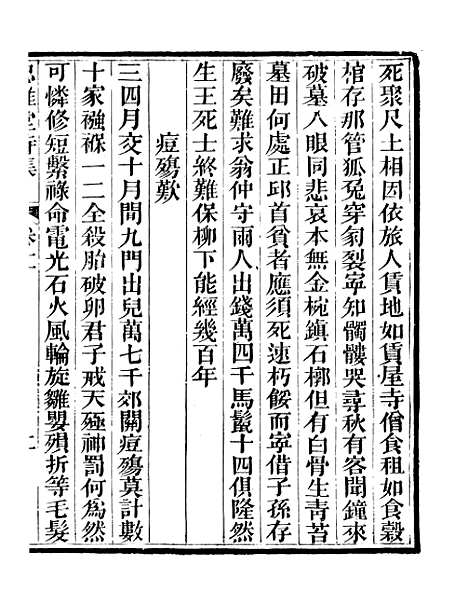 死聚尺土相因依旅人賃地如賃屋寺僧食租如食穀
棺存那管狐兔穿劵裂寧知髑髏哭尋秋有客聞鐘來
破墓入眼同悲哀本無金椀鎮石槨但有白骨生靑苔
墓田何處正邱首貧者應須死速朽餒而寧借子孫存
廢矣難求翁仲守雨人出錢萬四千馬鬛十四俱隆然
生王死士終難保柳下能經幾百年
痘殤歎
三四月交十月間九門出兒萬七千郊關痘殤莫計數
十家襁褓一二全殺胎破卵君子戒天殛神罰何爲然
可憐修短繫祿命電光石火風輪旋雛嬰殞折等毛髮